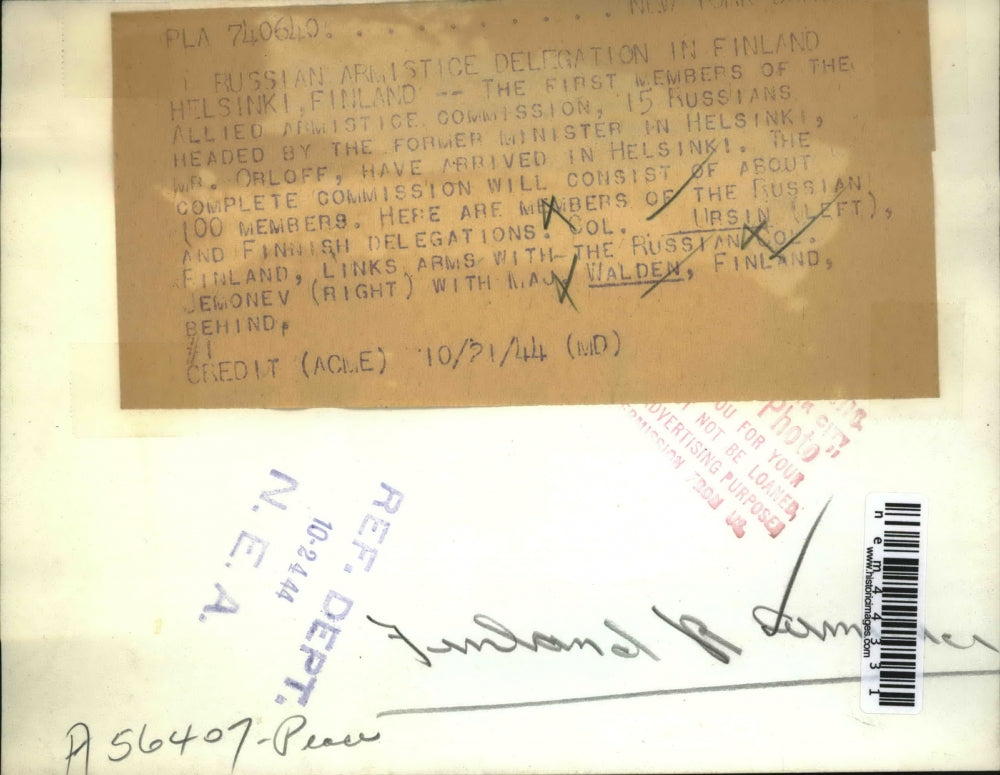 PLA 740640. . . . . . . . . . NEW YORK
RUSSIAN ARMISTICE DELEGATION IN FINLAND
HELSINKI, FINLAND -- THE FIRST MEMBERS OF THE
ALLIED ARMISTICE COMMISSION, 15 RUSSIANS
HEADED BY THE FORMER MINISTER IN HELSINKI,
MR. ORLOFF, HAVE ARRIVED IN HELSINKI. THE
COMPLETE COMMISSION WILL CONSIST OF ABOUT
100 MEMBERS. HERE ARE MEMBERS OF THE RUSSIAN
AND FINNISH DELEGATIONS. COL. URSIN (LEFT),
FINLAND, LINKS ARMS WITH THE RUSSIAN COL.
JEMONEV (RIGHT) WITH MAJ WALDEN, FINLAND,
BEHIND.
#1
CREDIT (ACME) 10/21/44 (MD)
Photo"
YOU FOR YOUR
NOT BE LOANED,
ADVERTISING PURPOSES
FROM US
REF. DEPT.
10-24 44
N. E. A.
Finland
A 56407-Peace
nem443331
www.historicimages.com